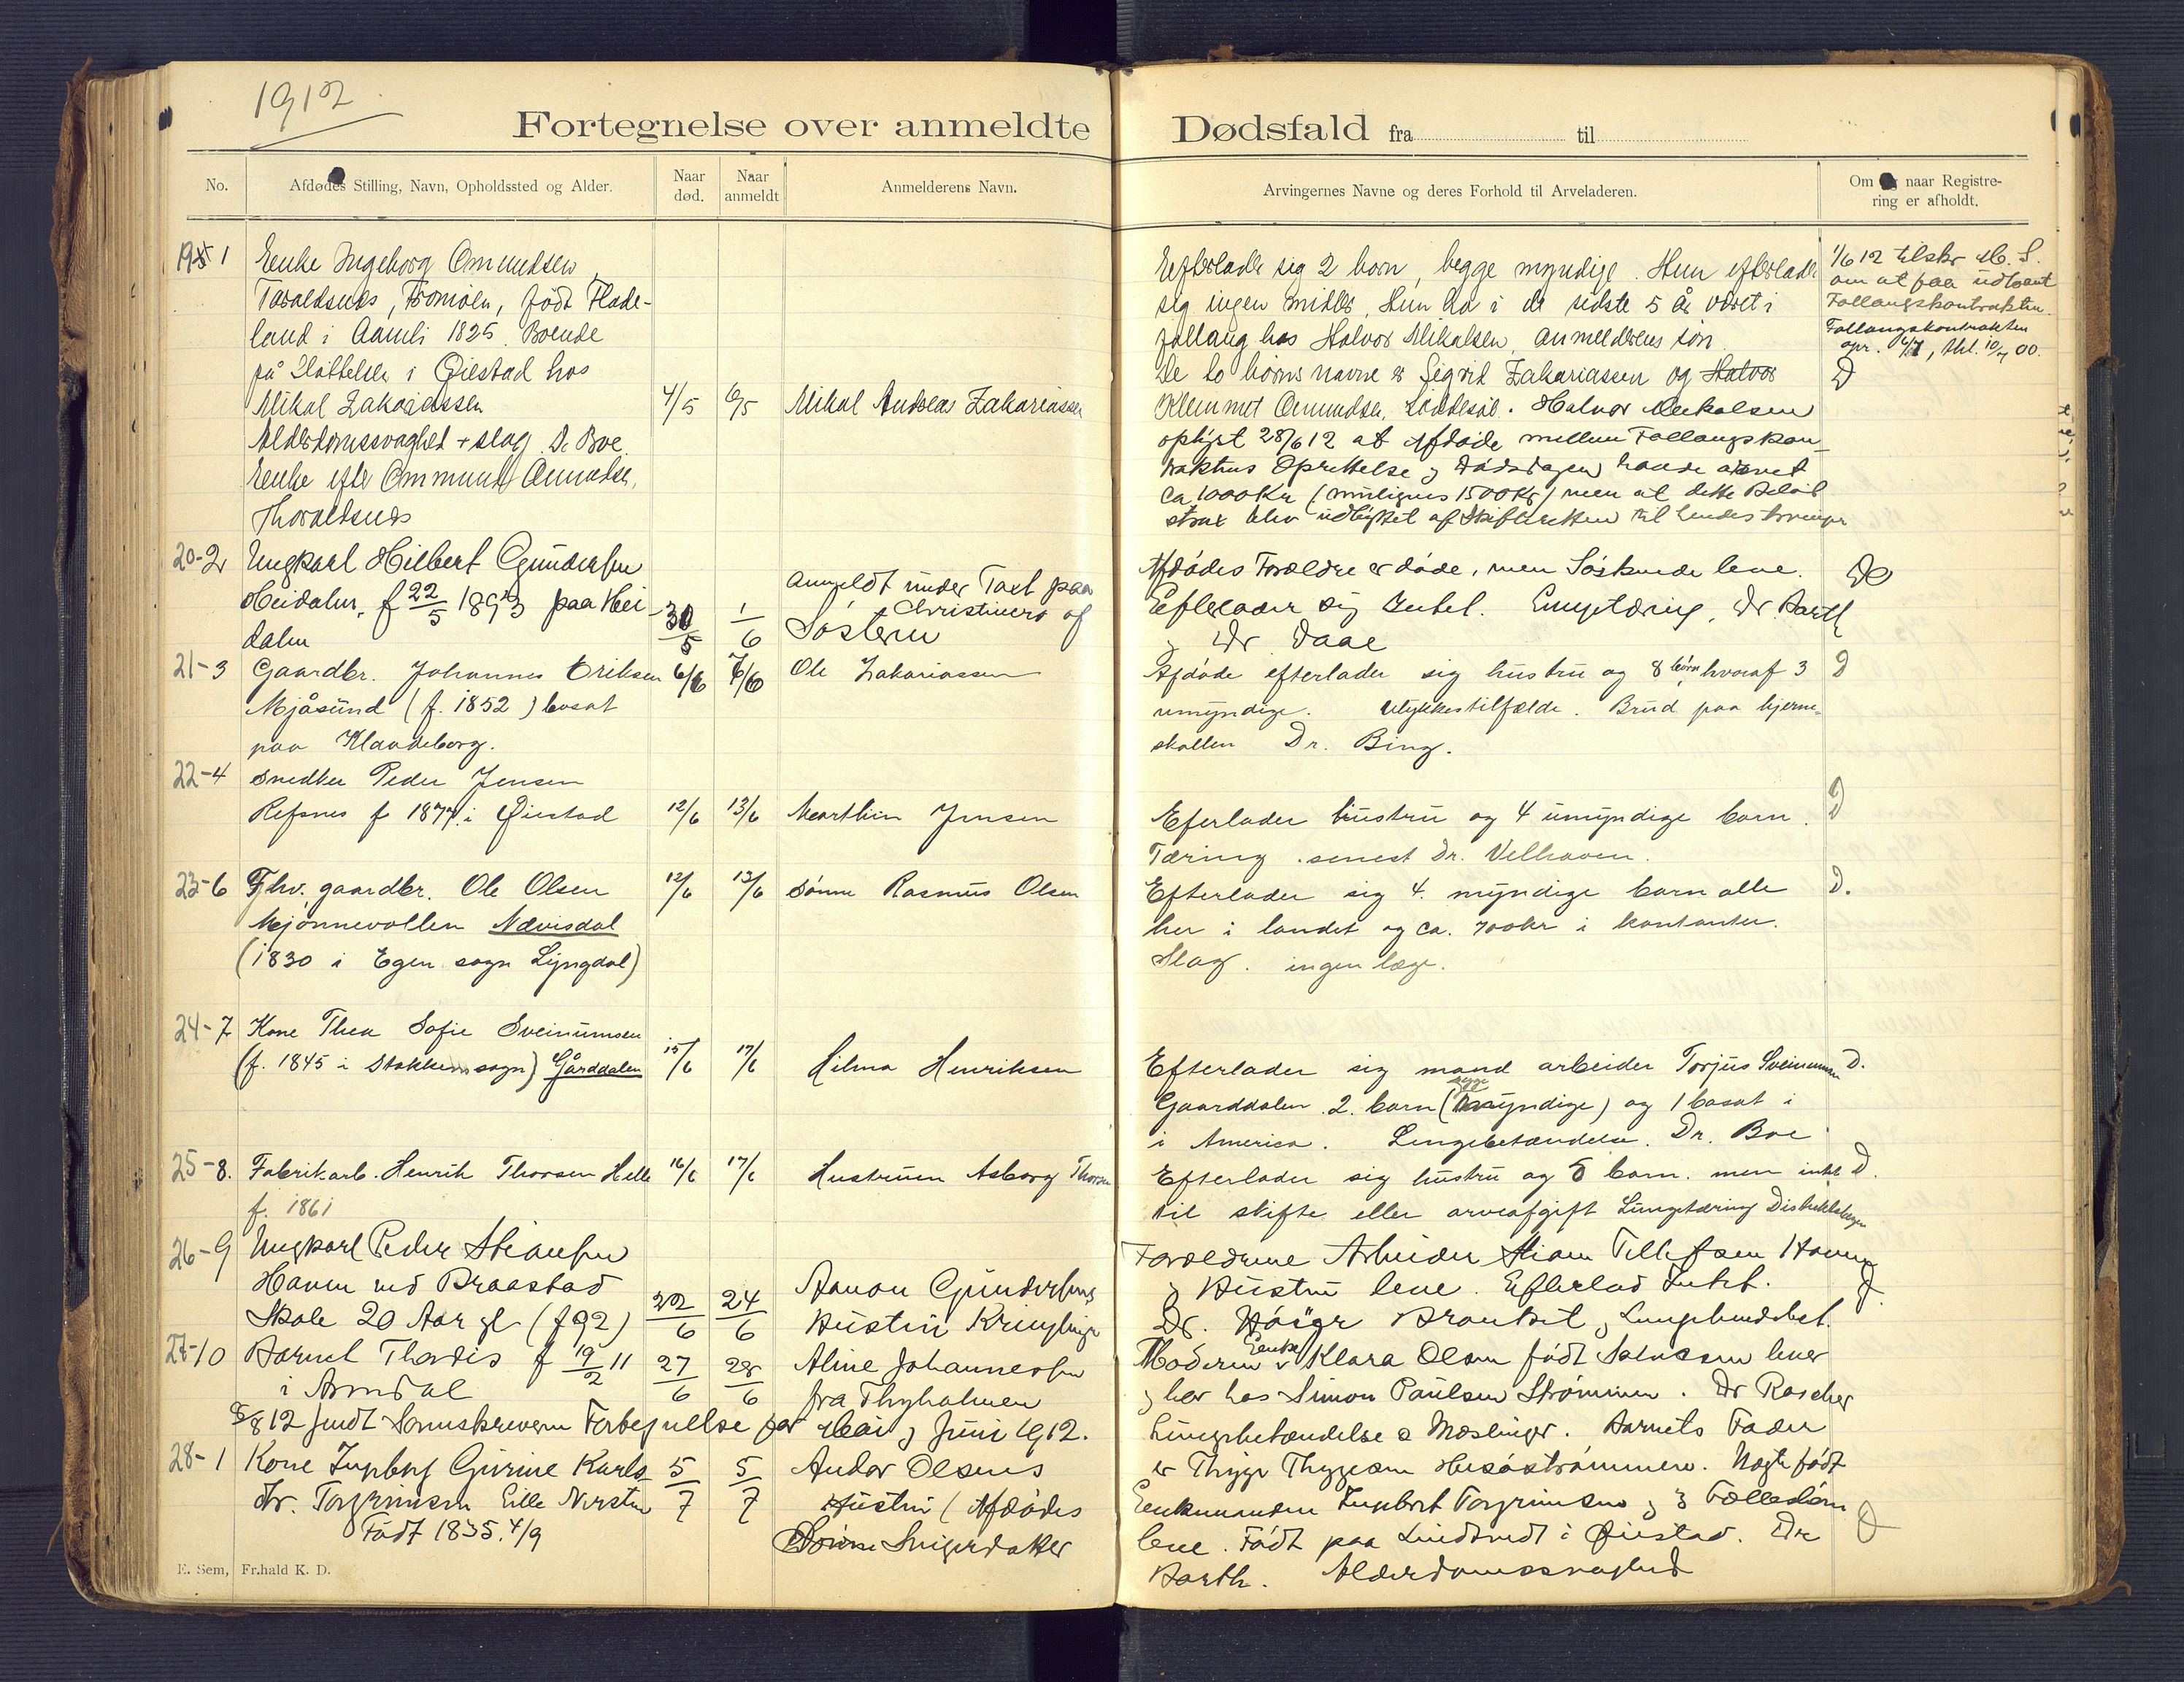 1912
Fortegnelse over anmeldte Dødsfald fra til
No. Afdødes Stilling, Navn, Opholdssted og Alder. Naar død. Naar anmeldt Anmelderens Navn.
Arvingernes Navne og deres Forhold til Arveladeren. Om og naar Registrering er afholdt.
19 1 Enke Ingeborg Omundsen
Taraldsnes, Tromöen, født Flade-
land i Aamli 1825. Boende
på i Øiestad hos
Mikal Zakariassen 4/5 6/5 Mikal Andreas Zakariassen
Alderdomssvaghed + slag. Dr Boe.
Enke efter Ommund
Thoraldsnes
Efterlader sig 2 born, begge myndige. Hun efterlader
sig ingen midler. Hun ha i de sidste 5 år været i
follaug hos Halvor Mikalsen, anmelderens søn.
De to børns navne er Sigrid Zakariassen og Halvor
Klemmet Omundsen, . Halvor Mikalsen
oplyst 28/6 12 at Afdøde mellem Follaugskon-
traktens Oprettelse og Dødsdagen havde arvet
ca 1000 Kr (muligens 1500 Kr) men at dette Beløb
strax blev af Skifteretten til hendes
1/6 12 tilskr M. S.
om at faa udlaant
Follaugskontrakten.
Follaugskontrakten
opr. 4/7, thl. 10/7 00.
D
20-2 Ungkarl Hilbert Gundersen
Heidalen, f 22/5 1893 paa Hei-
dalen 30/5 1/6 anmeldt under Taxt paa
Christinero af
Søsteren
Afdødes Forældre er døde, men Søskende leve.
Efterlader sig Intet. , Dr. Barth
og Dr Daae
21-3 Gaardbr. Johannes Eriksen 6/6 7/6 Ole Zakariassen
Mjåsund (f. 1852) bosat
paa Klaadeborg.
Afdøde efterlader sig hustru og 8 børn hvoraf 3 D
umyndige. Ulykkestilfælde. Brud paa hjerne-
skallen Dr. Bing.
22-4 Snedker Peder Jensen
Refsnes f 1877 i Øiestad 12/6 13/6 Marthin Jensen
Eferlader hustru og 4 umyndige barn. D
Tæring. senest Dr. Velhaven.
23-6 Fhv. gaardbr. Ole Olsen 12/6 13/6 Sønne Rasmus Olsen
Mjønnevollen Nævisdal
(1830 i Egen sogn Lyngdal)
Efterlader sig 4. myndige barn alle D.
her i landet og ca. 700kr i kontanter.
Slag. ingen læge.
24-7 Kone Thea Sofie Sveinumsen
(f. 1845 i Stokken sogn) Gårddalen 15/6 17/6 Hilma Henriksen
Efterlader sig mand arbeider Torjus Sveinumsen D.
Gaarddalen. 2. barn (begge myndige) og 1 bosat i
i America. Lungebetændelse. Dr. Boe
25-8. Fabrikarb. Henrik Thorsen Helle 16/6 17/6 Hustruen Asborg Thorsen
f. 1861
Efterlader sig hustru og 8 barn. men intet D.
til skifte eller arveafgift Lungetæring Distriktslægen
26-9 Ungkarl Peder Stiansen
Haven ved Braastad
Skole 20 Aar gl (f 92) 22/6 24/6 Aanon Gundersens
Hustru
Forældrene Arbeider Stian Tellefsen Haven
og Hustru leve. Efterlod Intet. D
Dr. Høigr
27-10 Barnet Thordis f 19/2 11 27/6 28/6 Aline Johannessen
i Arendal fra Thyholmen
Moderen Enke Klara Olsen født Salvesen lever
og bor hos Simon Paulsen Strømmen. Dr Rascher
Lungebetændelse a Mæslinger. Barnets Fader
er Thygesen Hisøstrømmen.
8/8 12 sendt Sorenskriveren Fortegnelse for Mai og Juni 1912.
28-1 Kone Ingeborg Gurine Karls- 5/7 5/7 Andor Olsens
dtr. Torgrimsen Lille Nersten Hustru (Afdødes
Født 1835. 4/9 Svigerdatter
Enkemanden Ingebret Torgrimsen og 3 Fællesbørn
leve. Født paa i Øiestad. Dr
Barth. Alderdomssvaghed
E. Sem, Fr.hald K. D.